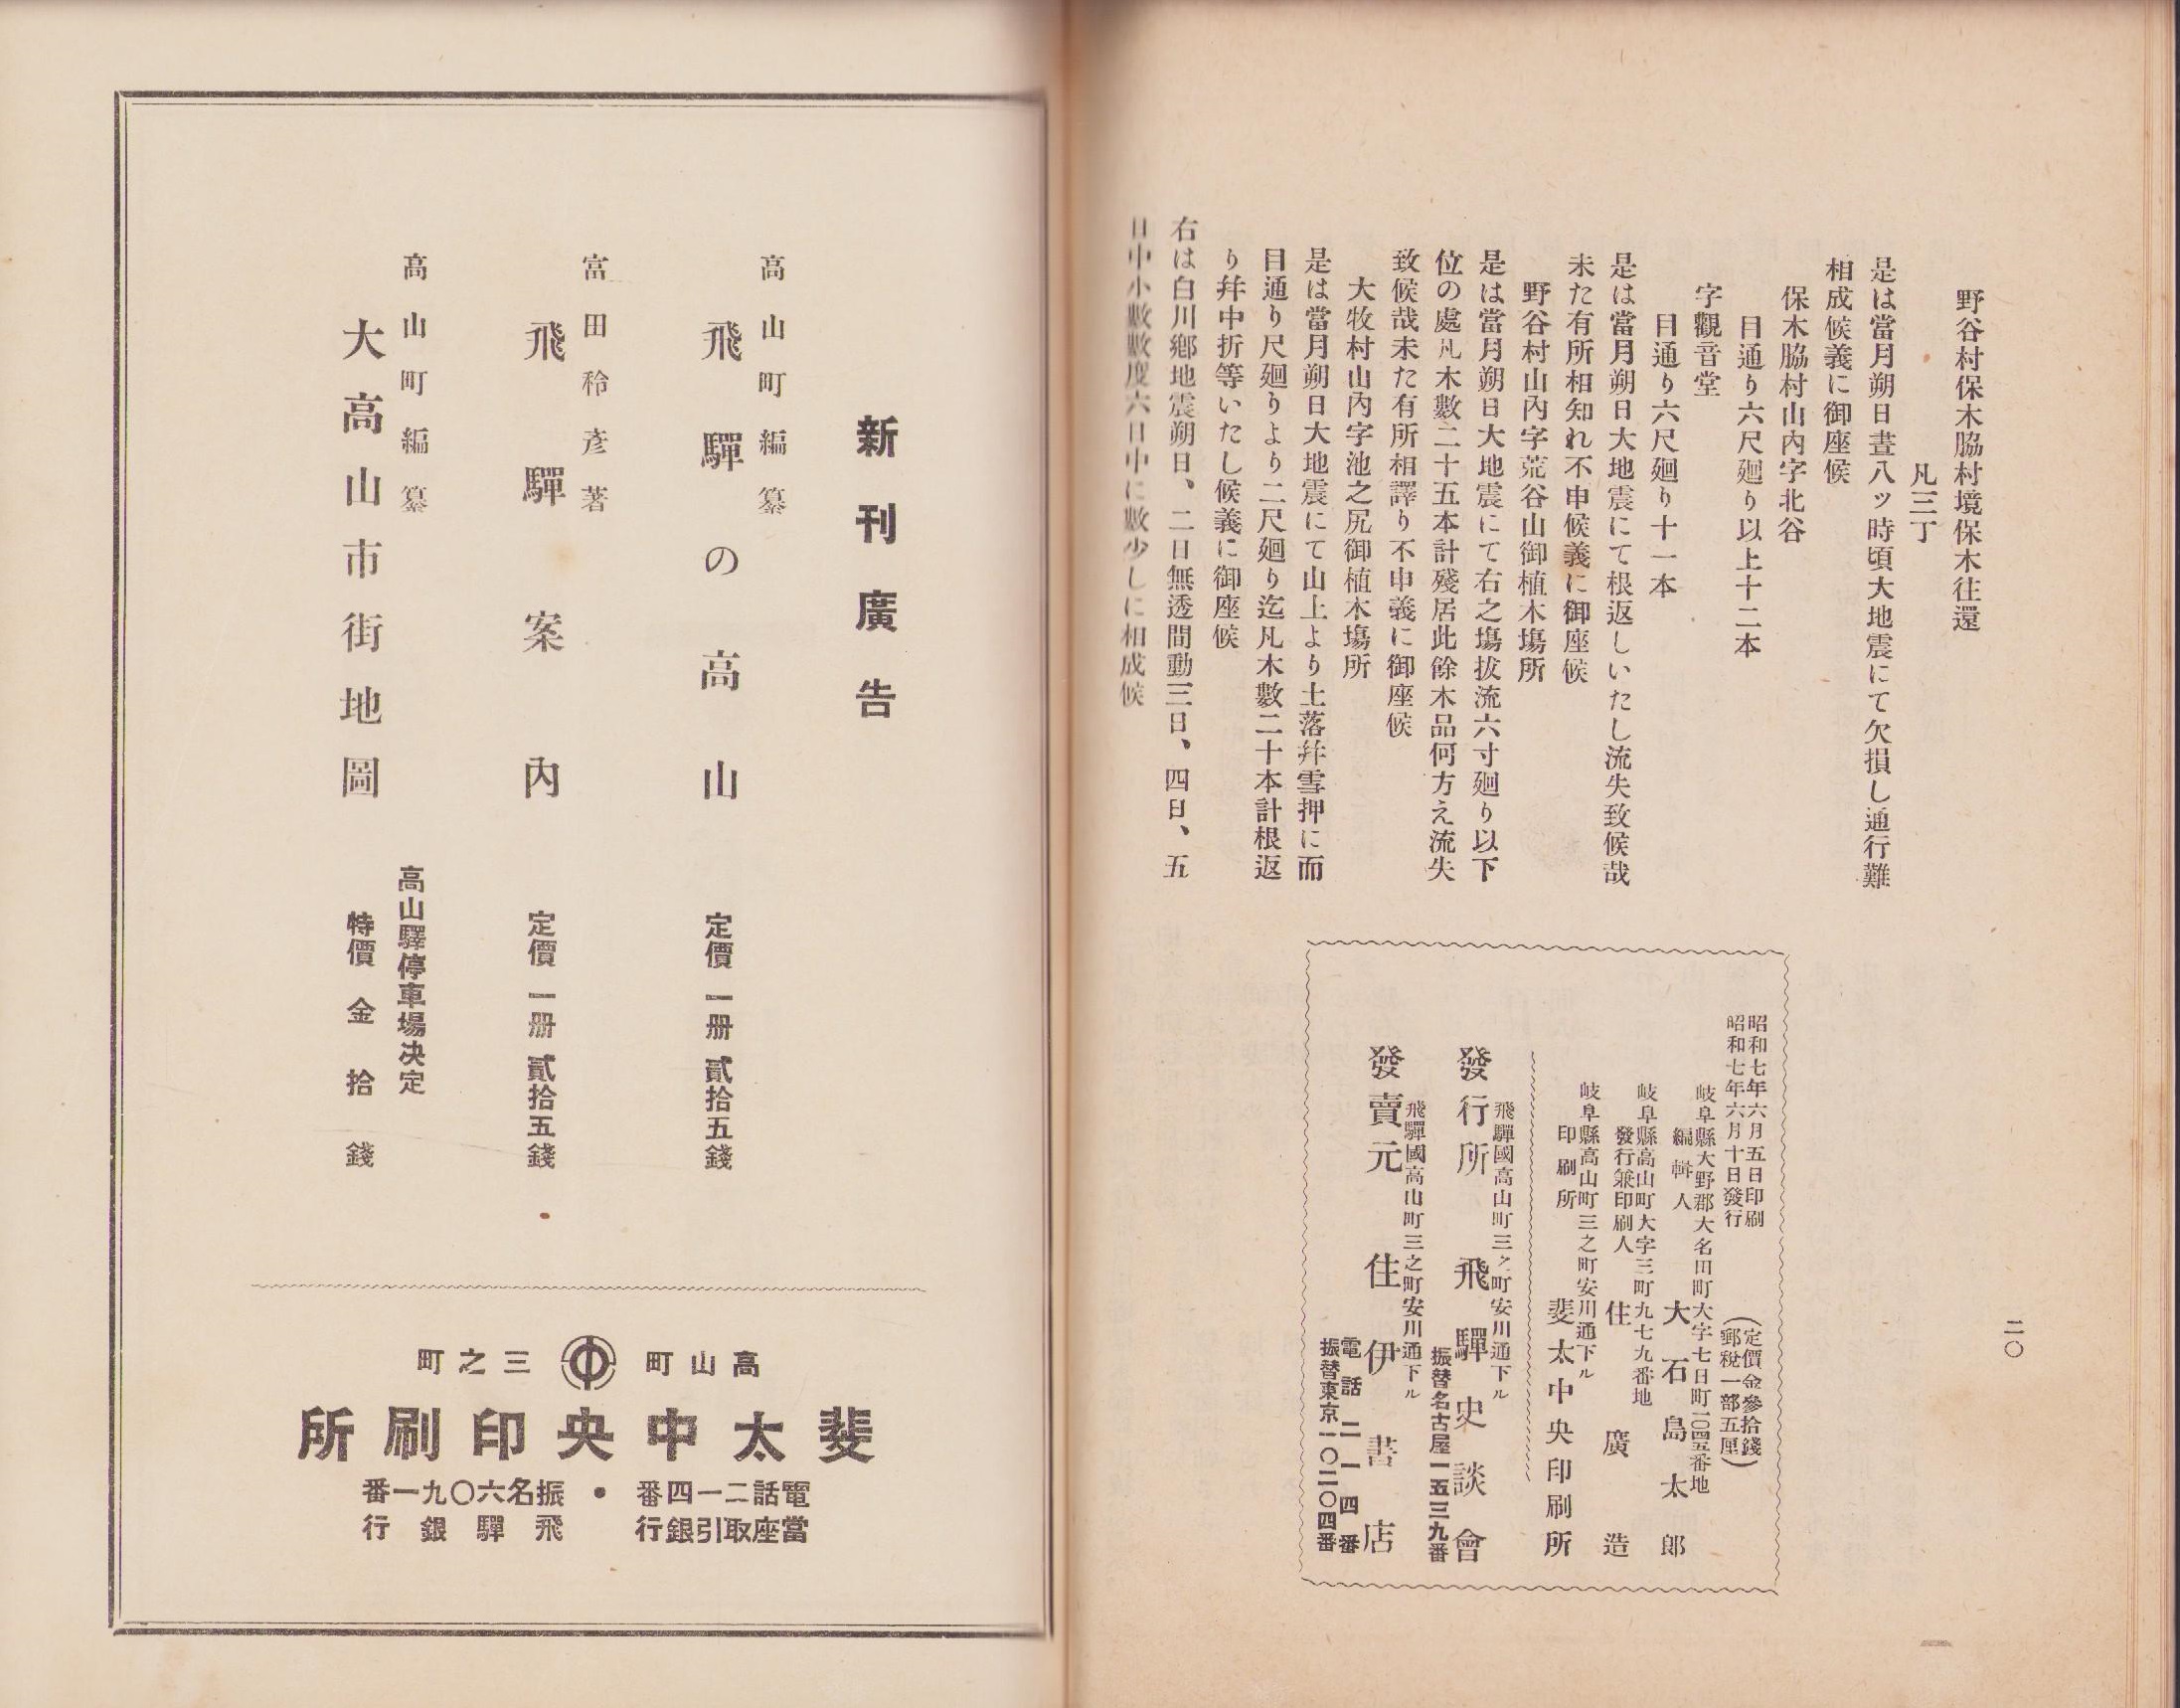 野谷村保木脇村境保木往還
凡三丁
是は當月朔日晝八ッ時頃大地震にて欠損し通行難
相成候義に御座候
保木脇村山内字北谷
目通り六尺廻り以上十二本
字觀音堂
目通り六尺廻り十一本
是は當月朔日大地震にて根返しいたし流失致候哉
未た有所相知れ不申候義に御座候
野谷村山内字荒谷山御植木塲所
是は當月朔日大地震にて右之塲拔流六寸廻り以下
位の處凡木數二十五本計殘居此餘木品何方え流失
致候哉未た有所相譯り不申義に御座候
大牧村山内字池之尻御植木塲所
是は當月朔日大地震にて山上より土落幷雪押に而
目通り尺廻りより二尺廻り迄凡木數二十本計根返
り幷中折等いたし候義に御座候
右は白川鄕地震朔日、二日無透間動三日、四日、五
日中小數數度六日中に數少しに相成候
二〇
昭和七年六月五日印刷
昭和七年六月十日發行
(定價金參拾錢
郵稅一部五厘)
岐阜縣大野郡大名田町大字七日町一〇四五番地
編輯人 大石島太郎
岐阜縣高山町大字三町九七九番地
發行兼印刷人 住廣造
岐阜縣高山町三之町安川通下ル
印刷所 斐太中央印刷所
飛驒國高山町三之町安川通下ル
發行所 飛驒史談會
振替名古屋一五三九番
飛驒國高山町三之町安川通下ル
發賣元 住伊書店
電話 二一四番
振替東京一〇二〇四番
新刊廣告
高山町編纂
飛驒の高山 定價一册貳拾五錢
富田秢彥著
飛驒案內 定價一册貳拾五錢
高山町編纂
大高山市街地圖 特價金拾錢
高山驛停車場決定
高山町 中 三之町
斐太中央印刷所
電話二一四番・振名六〇九一番
當座取引銀行 飛驒銀行